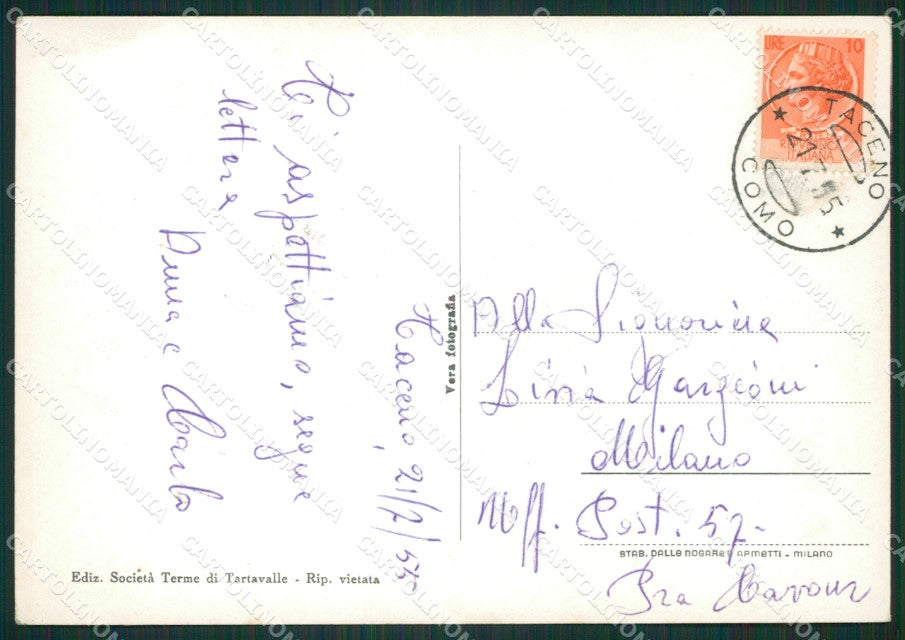 LIRE 10
REPUBBLICA
ITALIANA
TACENO
21.7.55
COMO
Ti aspettiamo, segue
lettera
Anna e Carlo
Taceno, 21/7/55
Vera fotografia
Alla Signorina
Livia
Milano
Uff. Post. 57-
STAB. DALLE NOGARE E ARMETTI - MILANO
Pza Cavour
Ediz. Società Terme di Tartavalle - Rip. vietata
CARTOLINOMANIA